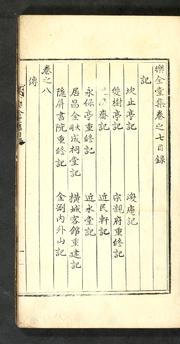 樂全堂集卷之七目錄
記
坎止亭記
澹庵記
雙樹亭記
宗親府重修記
齋記
近民軒記
永保亭重修記
近水堂記
居昌金畝成祠堂記
橫城客館重建記
隱屏書院重修記
金剛內外山記
卷之八
傳